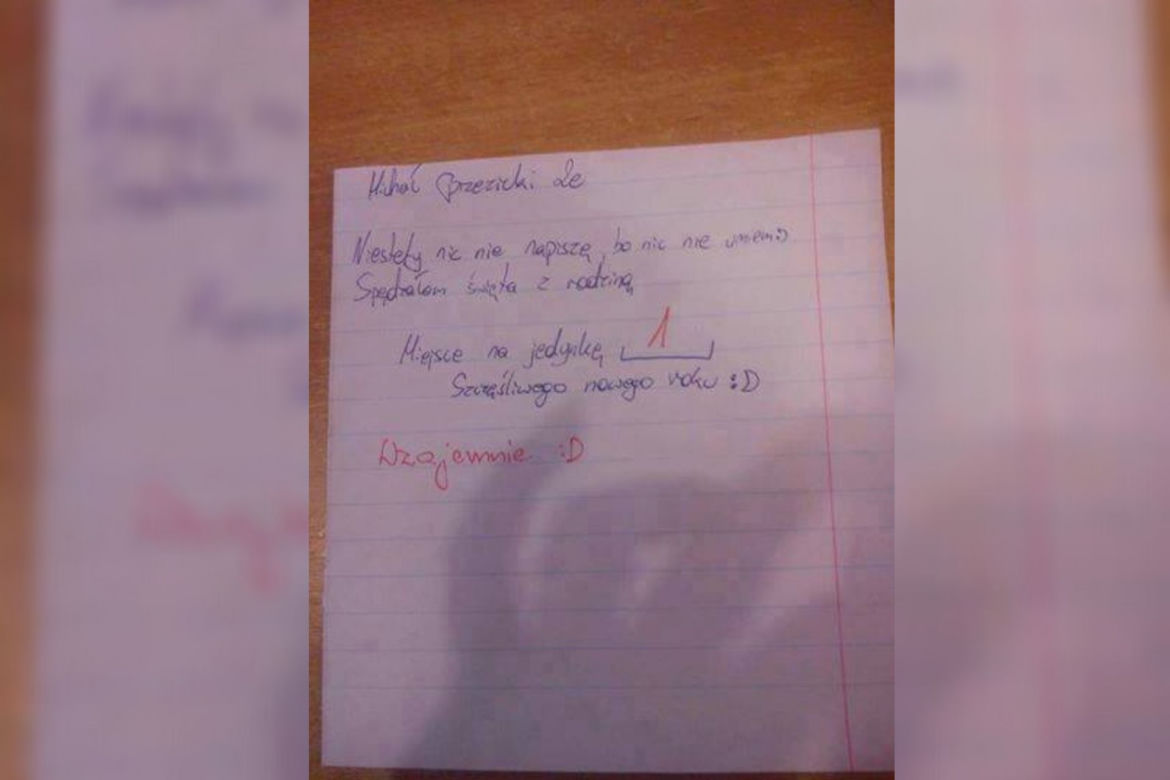 Michał Brzezicki 2e
Niestety nic nie napiszę, bo nic nie umiem :)
Spędzałem święta z rodziną
Miejsce na jedynkę 1
Szczęśliwego nowego roku :D
Wzajemnie :D